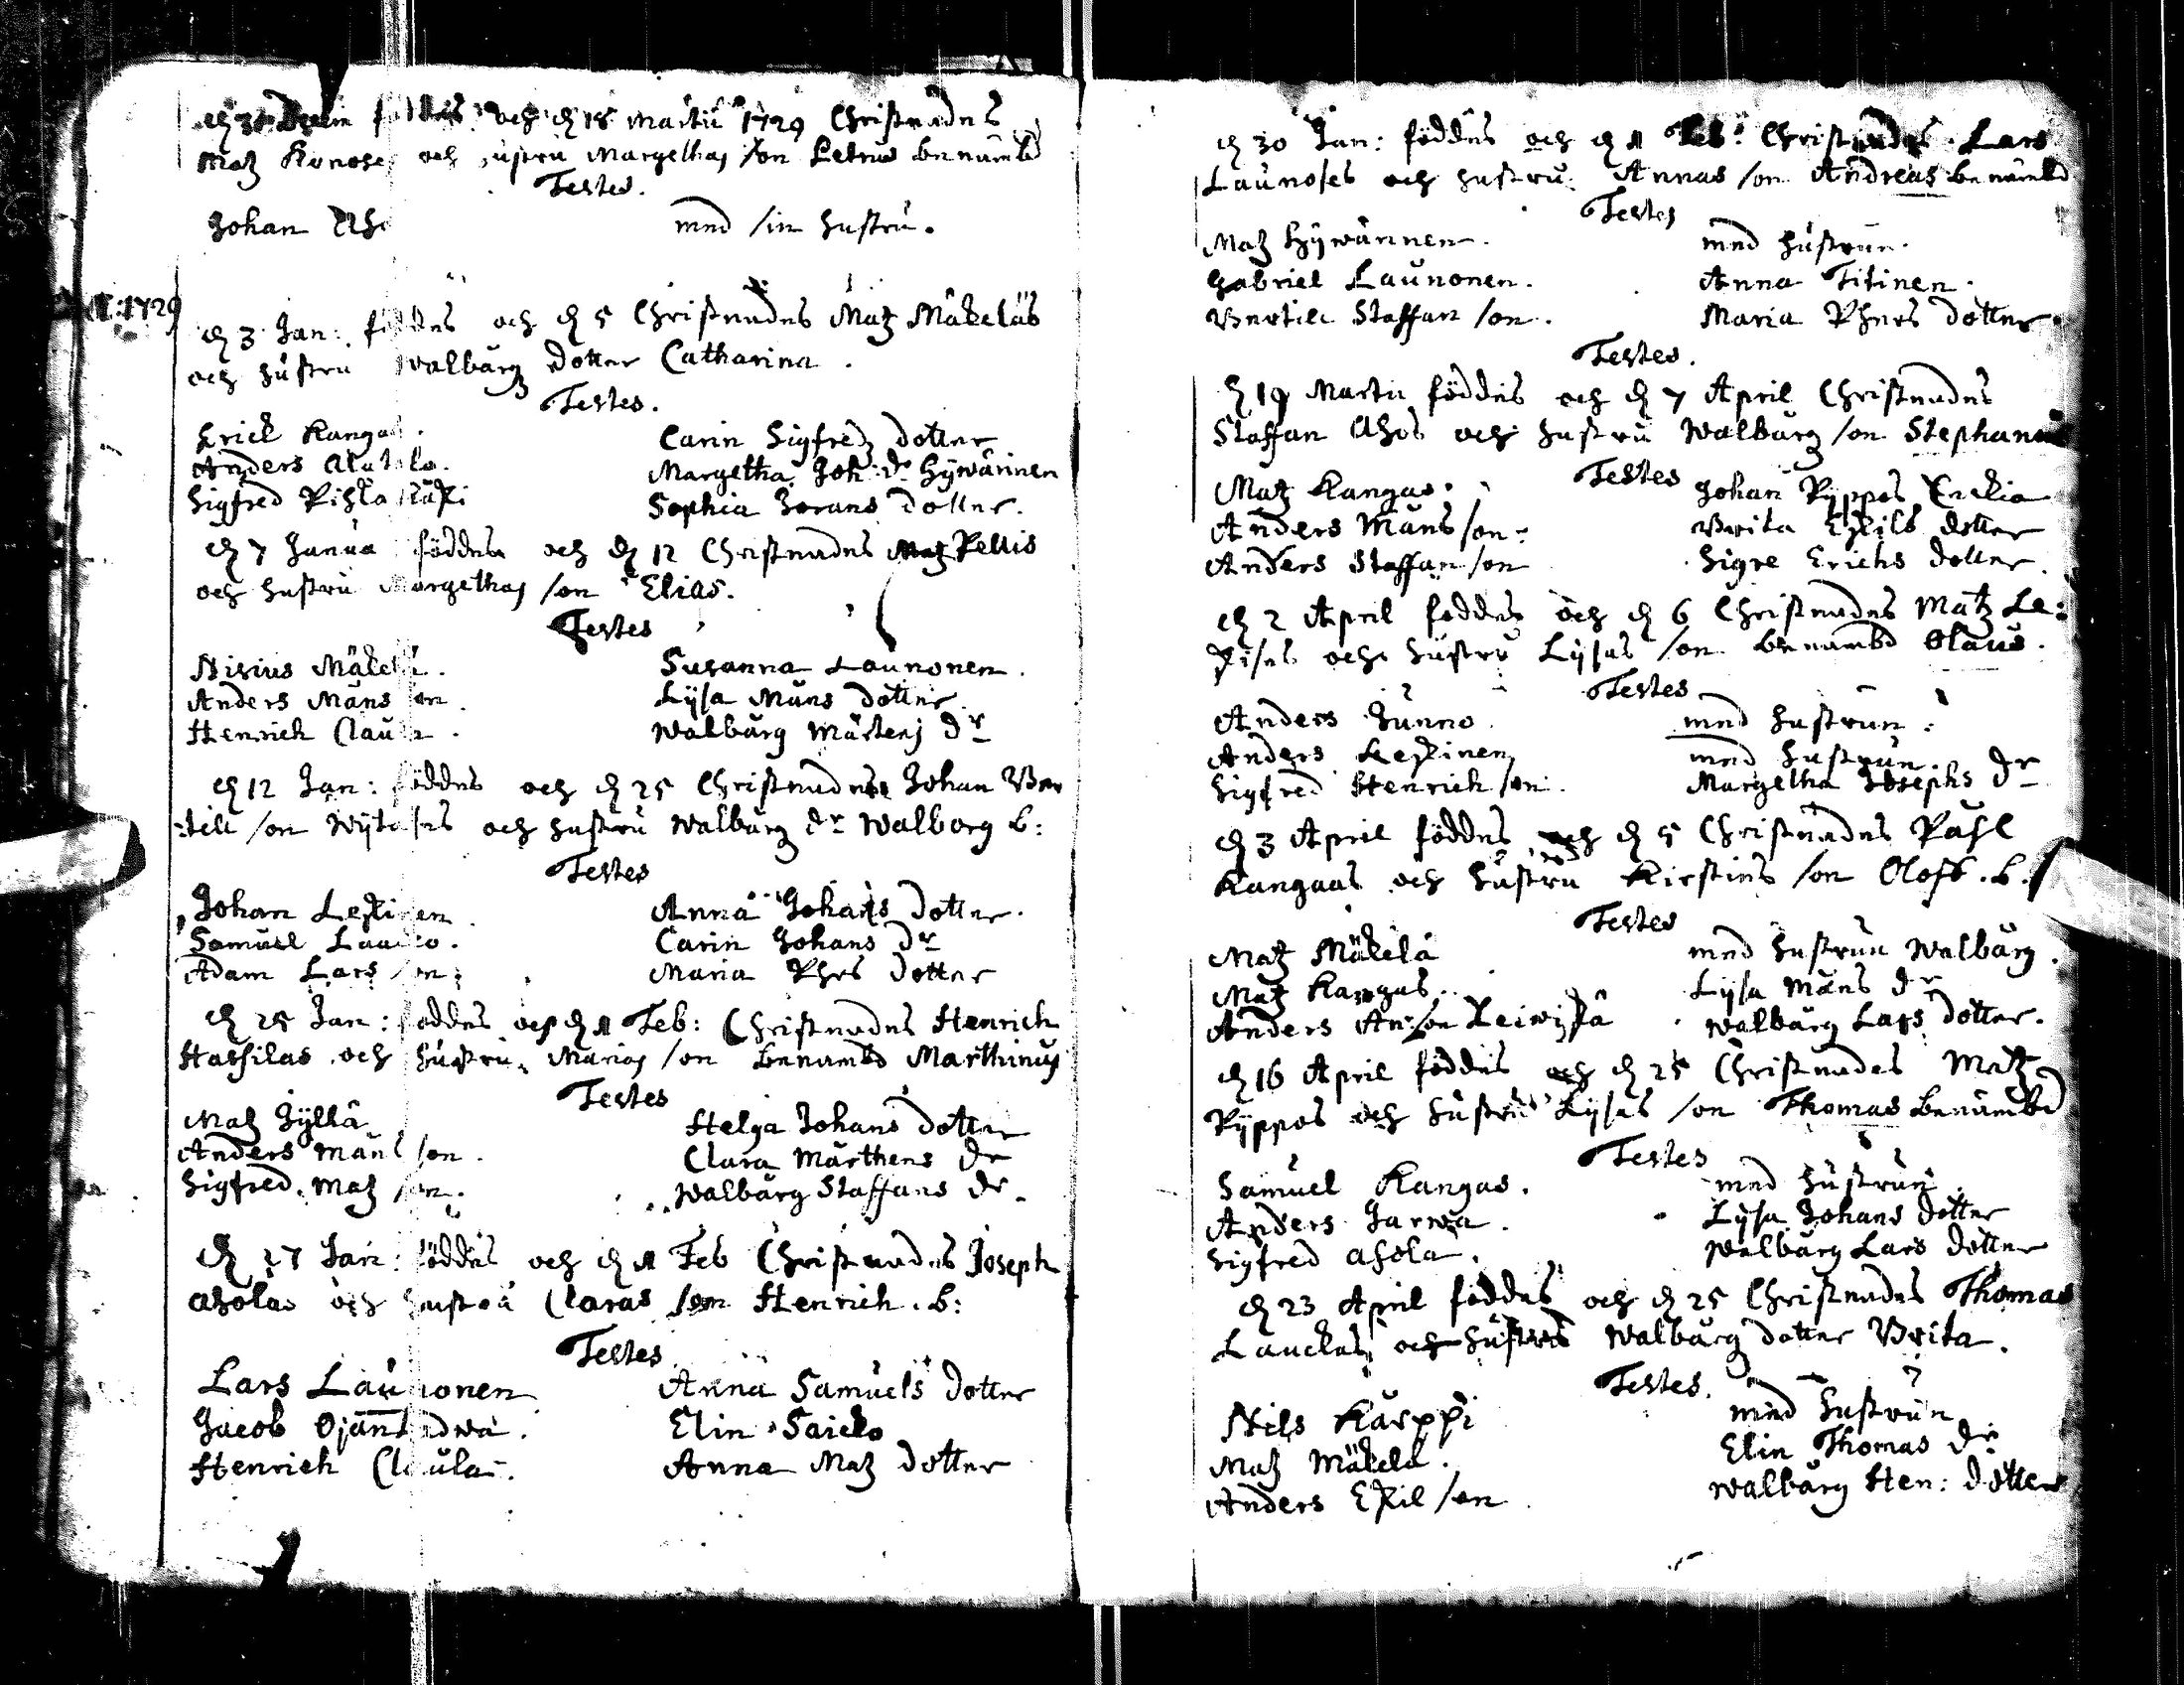 föddes och d 18 Martii 1729 Christnades
Matz och hustru Margethas son Petrus benämbd
Testes.
Johan med sin hustru.
A: 1729
d 3 Jan: föddes och d 5 Christnades Matz Mäkeläs
och hustru Walbårg dotter Catharina.
Testes.
Erick Kangas. Carin Sigfredz dotter
Anders Alatalo. Margetha Joh: dr Hÿwärinen
Sigfred Sophia Jörans dotter.
d 7 Janua föddes och d 12 Christnades Matz Pellis
och hustru Margethas son Elias.
Testes
Nisius Mäkelä. Susanna Launonen.
Anders Måns son. Lÿsa Måns dotter.
Henrich Claula. Walbårg Mårtens dr
d 12 Jan: föddes och d 25 Christnades Johan Ber
till son och hustru Walbårg dr Walborg b:
Testes
Johan Leskinen Anna Johans dotter.
Samuel Laucko. Carin Johans dr
Adam Lars son. Maria Phrs dotter
d 25 Jan: föddes och d 11 Feb: Christnades Henrich
Hassilas och hustru Marias son benämbd Marthinus
Testes
Matz Jÿllä Helga Johans dotter
Anders Måns son. Clara Mårthens dr
Sigfred Matz son. Walbårg Staffans dr.
d 27 Jan: föddes och d 11 Feb Christnades Joseph
Aholas och hustru Claras son Henrich. b:
Testes
Lars Launonen Anna Samuels dotter
Jacob Elin Saicko
Henrich Claula. Anna Matz dotter
d 30 Jan: föddes och d 11 Feb: Christnades Lars
Launoses och hustru Annas son Andreas benämbd
Testes
Matz Hÿwärinen. med hustrun.
Gabriel Launonen. Anna Titinen.
Bertill Staffan son. Maria Phers dotter
Testes.
d 19 Martii föddes och d 7 April Christnades
Staffan Ahos och hustru Walbårg son Stephanus
Testes
Matz Kangas. Johan Pÿppos Enckia
Anders Måns son. Brita Eskils dotter
Anders Staffan son Sigre Erichs dotter.
d 2 April föddes och d 6 Christnades Matz Le:
skises och hustru Lÿsas son benämbd Olaus.
Testes
Anders Junno. med hustrun.
Anders Leskinen med hustrun.
Sigfred Henrich son. Margetha Josephs dr
d 3 April föddes och d 5 Christnades Påhl
Kangaas och hustru Kirstins son Oloff. b.
Testes
Matz Mäkelä med hustrun Walbårg.
Matz Kangas. Lÿsa Måns dr
Anders An:son Leiwiskä Walbårg Lars dotter.
d 16 April föddes och d 25 Christnades Matz
Pÿppos och hustru Lÿsas son Thomas benämbd
Testes
Samuel Kangas. med hustrun.
Anders Jarwa. Lÿsa Johans dotter
Sigfred Ahola. Walbårg Lars dotter
d 23 April föddes och d 25 Christnades Thomas
Lauckas och hustrus Walbårg dotter Brita.
Testes.
Nils Karppi med hustrun
Matz Mäkelä. Elin Thomas dr
Anders Eskil son Walbårg Hen: dotter